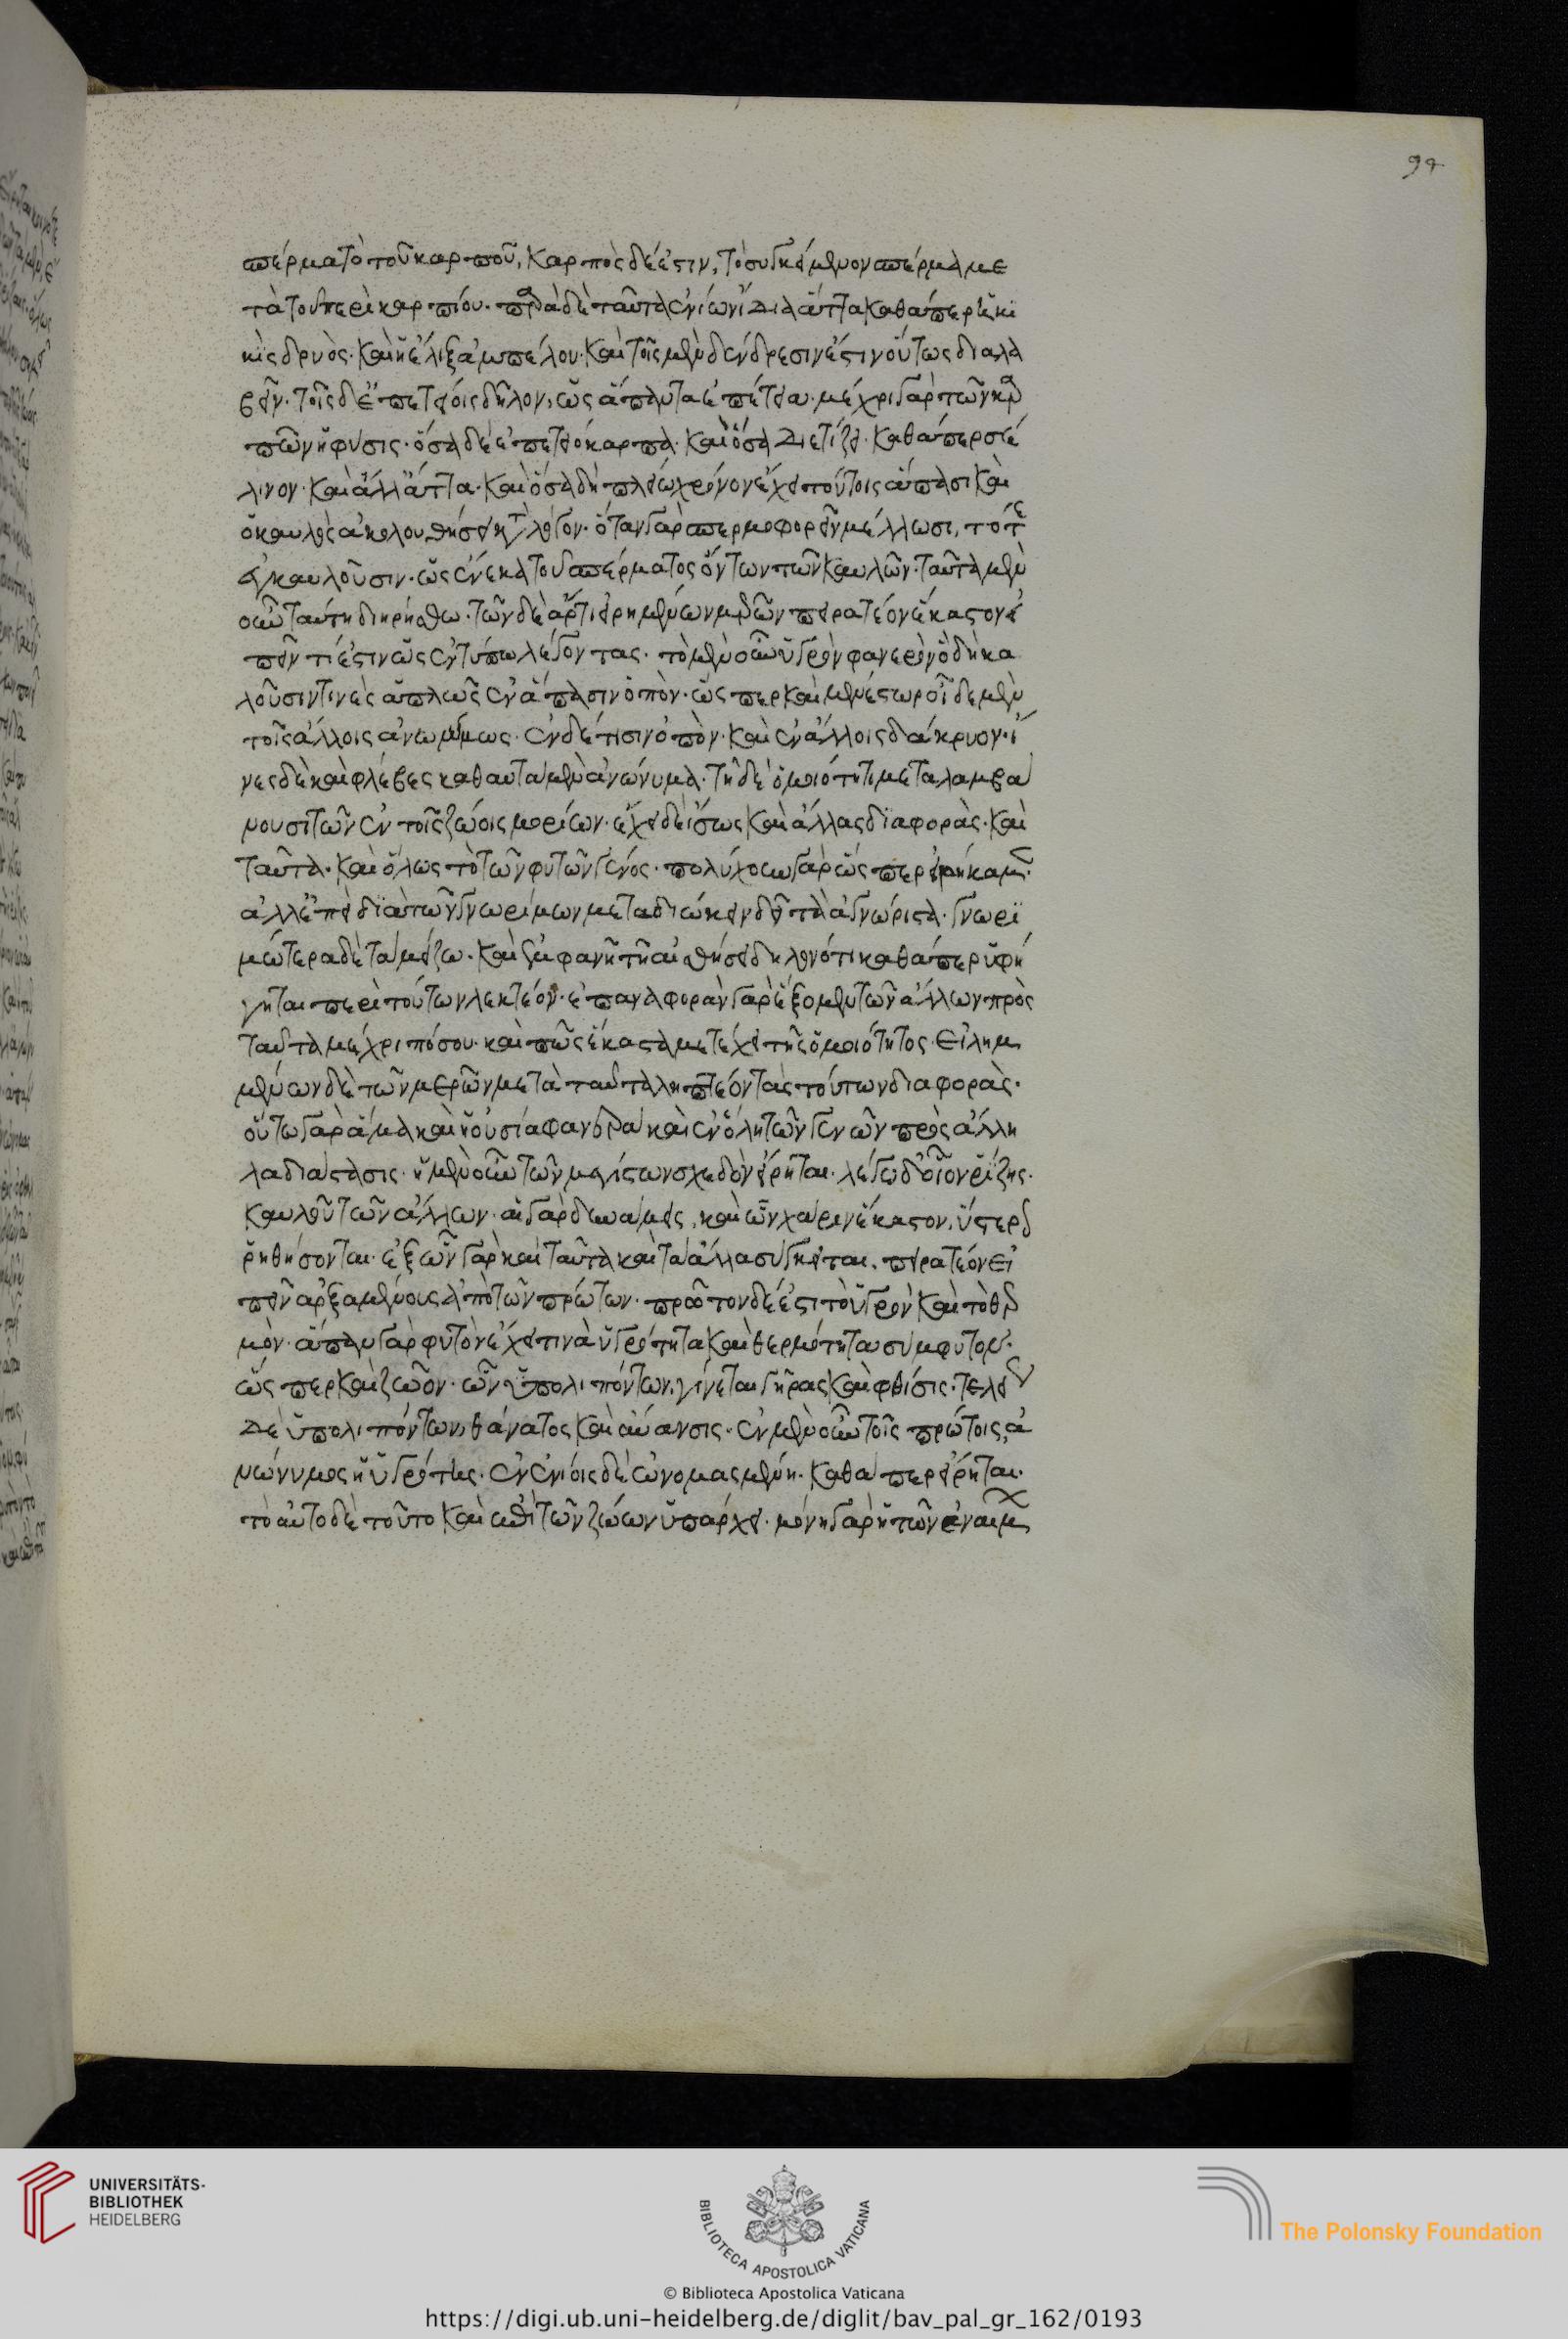 σπέρμα τὸ τοῦ καρποῦ, καρπὸς δέ ἐστιν, τὸ συγκείμενον σπέρμα με
τὰ τοῦ περὶ καρπίου· παρὰ δὲ ταῦτα ἐνίων ἴδια ἄττα καθάπερ ἡ κι
κὶς δρυὸς· καὶ ἡ ἕλιξ ἀμπέλου· καὶ τοῖς μὲν δένδρεσιν ἐστιν οὕτως διαλα
βεῖν· τοῖς δὲ ἐπετείοις δῆλον, ὡς ἅπαντα ἐπέτεια· μέχρι γὰρ τῶν καρ
πῶν ἡ φύσις· ὅσα δὲ ἐπετειόκαρπα· καὶ ὅσα διετίζει· καθάπερ σέ
λινον· καὶ ἄλλ' ἄττα· καὶ ὅσα δὴ πλείω χρόνον ἔχει τούτοις ἅπασι καὶ
ὁ καυλὸς ἀκολουθήσει κατὰ λόγον· ὅταν γὰρ σπερμοφορεῖν μέλλωσι, τότε
ἐκκαυλοῦσιν· ὡς ἕνεκα τοῦ σπέρματος ὄντων τῶν καυλῶν· ταῦτα μὲν
οὖν ταύτη διηρήσθω· τῶν δὲ ἄρτι εἰρημένων μερῶν πειρατέον ἕκαστον εἰ
πεῖν τί ἐστιν ὡς ἐν τύπω λέγοντας· τὸ μὲν οὖν ὑγρὸν φανερὸν ὃ δὴ κα
λοῦσιν τινὲς ἁπλῶς ἐν ἅπασιν ὀπὸν· ὥσπερ καὶ μενέστωρ οἱ δὲ μὲν
τοῖς ἄλλοις ἀνωνύμως· ἐν δέ τισιν ὀπὸν· καὶ ἐν ἄλλοις δάκρυον· ἶ
νες δὲ καὶ φλέβες καθαυτὰ μὲν ἀνώνυμα· τῆ δὲ ὁμοιότητι μεταλαμβά
νουσι τῶν ἐν τοῖς ζώοις μορίων· ἔχει δὲ ἴσως καὶ ἄλλας διαφορὰς· καὶ
ταῦτα· καὶ ὅλως τὸ τῶν φυτῶν γένος· πολύχουν γὰρ ὥσπερ εἰρήκαμεν·
ἀλλ' ἐπεὶ διὰ τῶν γνωρίμων μεταδιώκειν δεῖ τὰ ἀγνώριστα· γνωρι
μώτερα δὲ τὰ μείζω· καὶ ἐμφανῆ τῆ αἰσθήσει δηλονότι καθάπερ ὑφή
γηται περὶ τούτων λεκτέον· ἐπαναφορὰν γὰρ ἕξομεν τῶν ἄλλων πρὸς
ταῦτα μέχρι πόσου· καὶ πῶς ἕκαστα μετέχει τῆς ὁμοιότητος· Εἰλημ
μένων δὲ τῶν μερῶν μετὰ ταῦτα ληπτέον τὰς τούτων διαφορὰς·
οὕτω γὰρ ἅμα καὶ ἡ οὐσία φανερὰ καὶ ἐν ὅλη τῶν γενῶν πρὸς ἄλλη
λα διάστασις· ἡ μὲν οὖν τῶν μεγίστων σχεδὸν εἴρηται· λέγω δ' οἷον ῥίζης·
καυλοῦ τῶν ἄλλων· αἱ γὰρ δυνάμεις, καὶ ὧν χάριν ἕκαστον, ὕστερον
ῥηθήσονται· ἐξ ὧν γὰρ καὶ ταῦτα καὶ τὰ ἄλλα σύγκειται, πειρατέον εἰ
πεῖν ἀρξαμένοις ἀπὸ τῶν πρώτων· πρῶτον δέ ἐστι τὸ ὑγρὸν καὶ τὸ θερ
μὸν· ἅπαν γὰρ φυτὸν ἔχει τινὰ ὑγρότητα καὶ θερμότητα σύμφυτον·
ὥσπερ καὶ ζῶον· ὧν ὑπολιπόντων, γίνεται γῆρας καὶ φθίσις· τελείων
δὲ ὑπολιπόντων, θάνατος καὶ αὔανσις· ἐν μὲν οὖν τοῖς πρώτοις, ἀ
νώνυμος ἡ ὑγρότης· ἐν ἐνίοις δὲ ὠνομασμένη· καθάπερ εἴρηται·
τὸ αὐτὸ δὲ τοῦτο καὶ ἐπὶ τῶν ζώων ὑπάρχει· μόνη γὰρ ἡ τῶν ἐναίμων
94
UNIVERSITÄTS-
BIBLIOTHEK
HEIDELBERG
BIBLIOTECA APOSTOLICA VATICANA
The Polonsky Foundation
© Biblioteca Apostolica Vaticana
https://digi.ub.uni-heidelberg.de/diglit/bav_pal_gr_162/0193